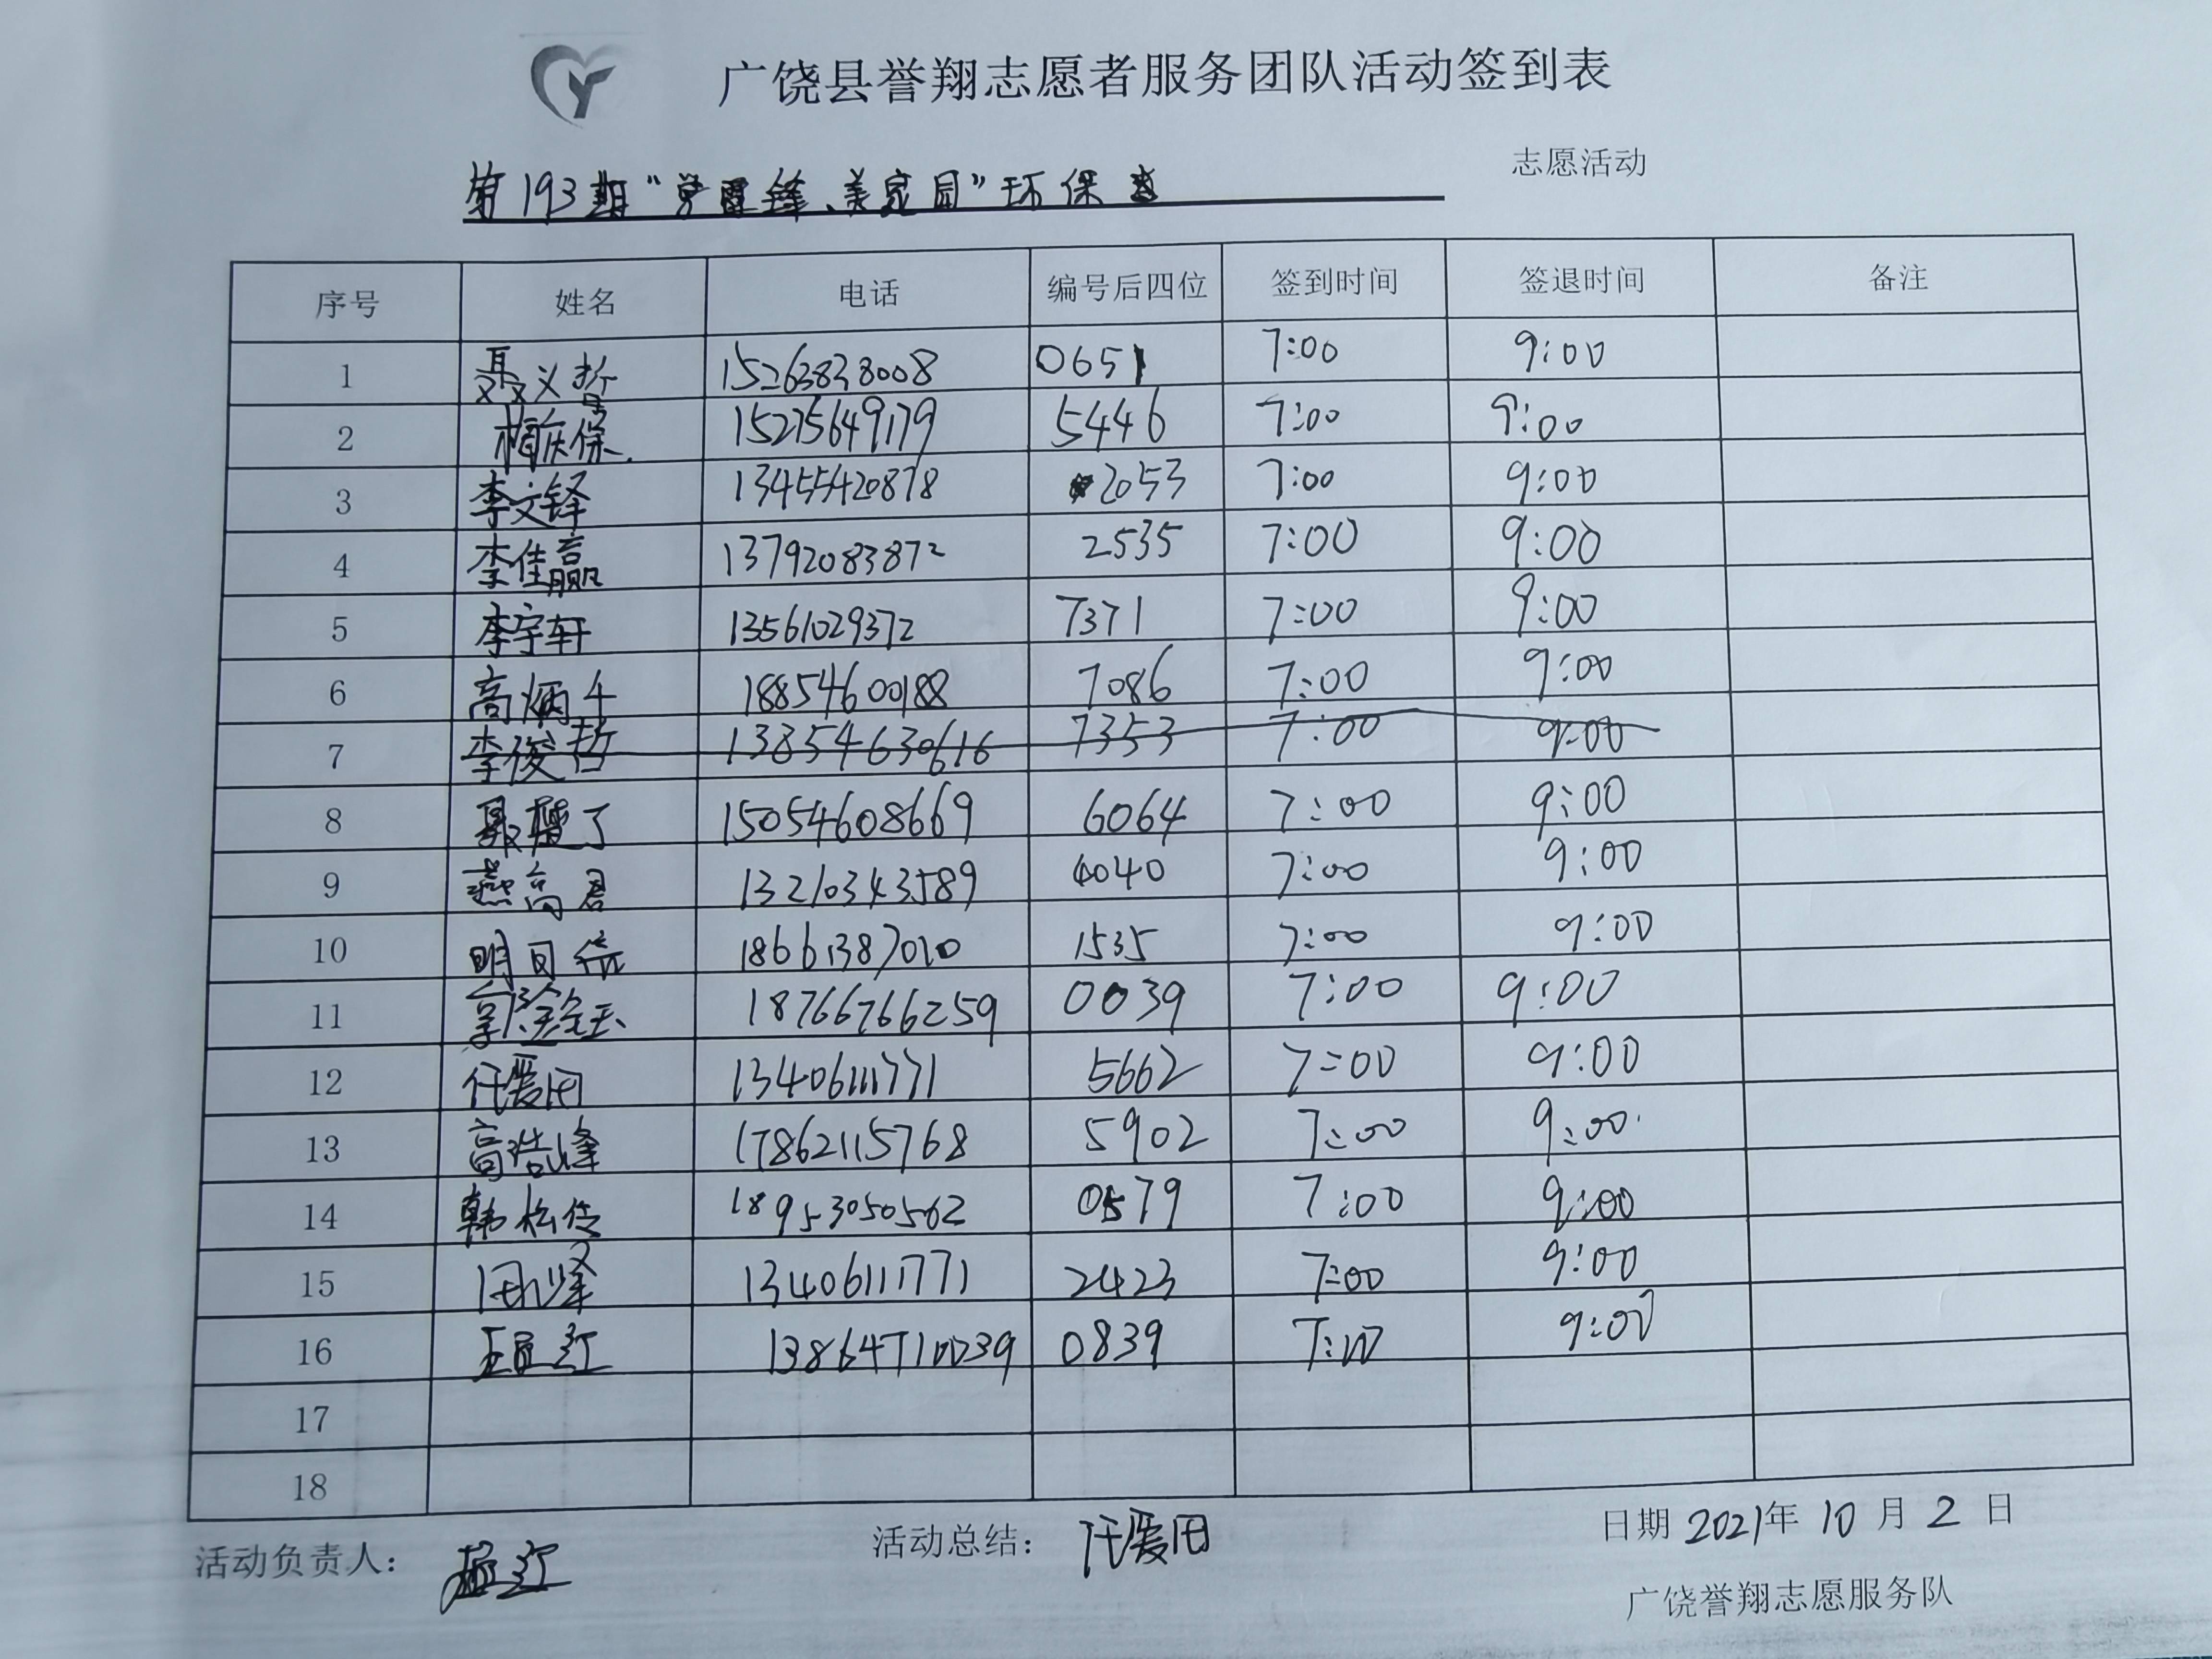 广饶县誉翔志愿者服务团队活动签到表
第193期“学雷锋、美家园”环保 志愿活动
序号 姓名 电话 编号后四位 签到时间 签退时间 备注
1 聂义哲 15263838008 0651 7:00 9:00
2 相庆保 15275649179 5446 7:00 9:00
3 李文铎 13455420878 2053 7:00 9:00
4 李佳赢 13792083872 2535 7:00 9:00
5 李宇轩 13561029372 7371 7:00 9:00
6 高炳斗 18854600188 7086 7:00 9:00
7 李俊哲 13854630616 7353 7:00 9:00
8 15054608669 6064 7:00 9:00
9 燕高君 13210343589 4040 7:00 9:00
10 18661387010 1535 7:00 9:00
11 18766766259 0039 7:00 9:00
12 任爱团 13406111771 5662 7:00 9:00
13 高浩峰 17862115768 5902 7:00 9:00
14 韩松传 18953050562 0579 7:00 9:00
15 13406111771 2423 7:00 9:00
16 13864710039 0839 7:00 9:00
17
18
活动负责人： 活动总结： 任爱团 日期 2021年 10 月 2 日
广饶誉翔志愿服务队